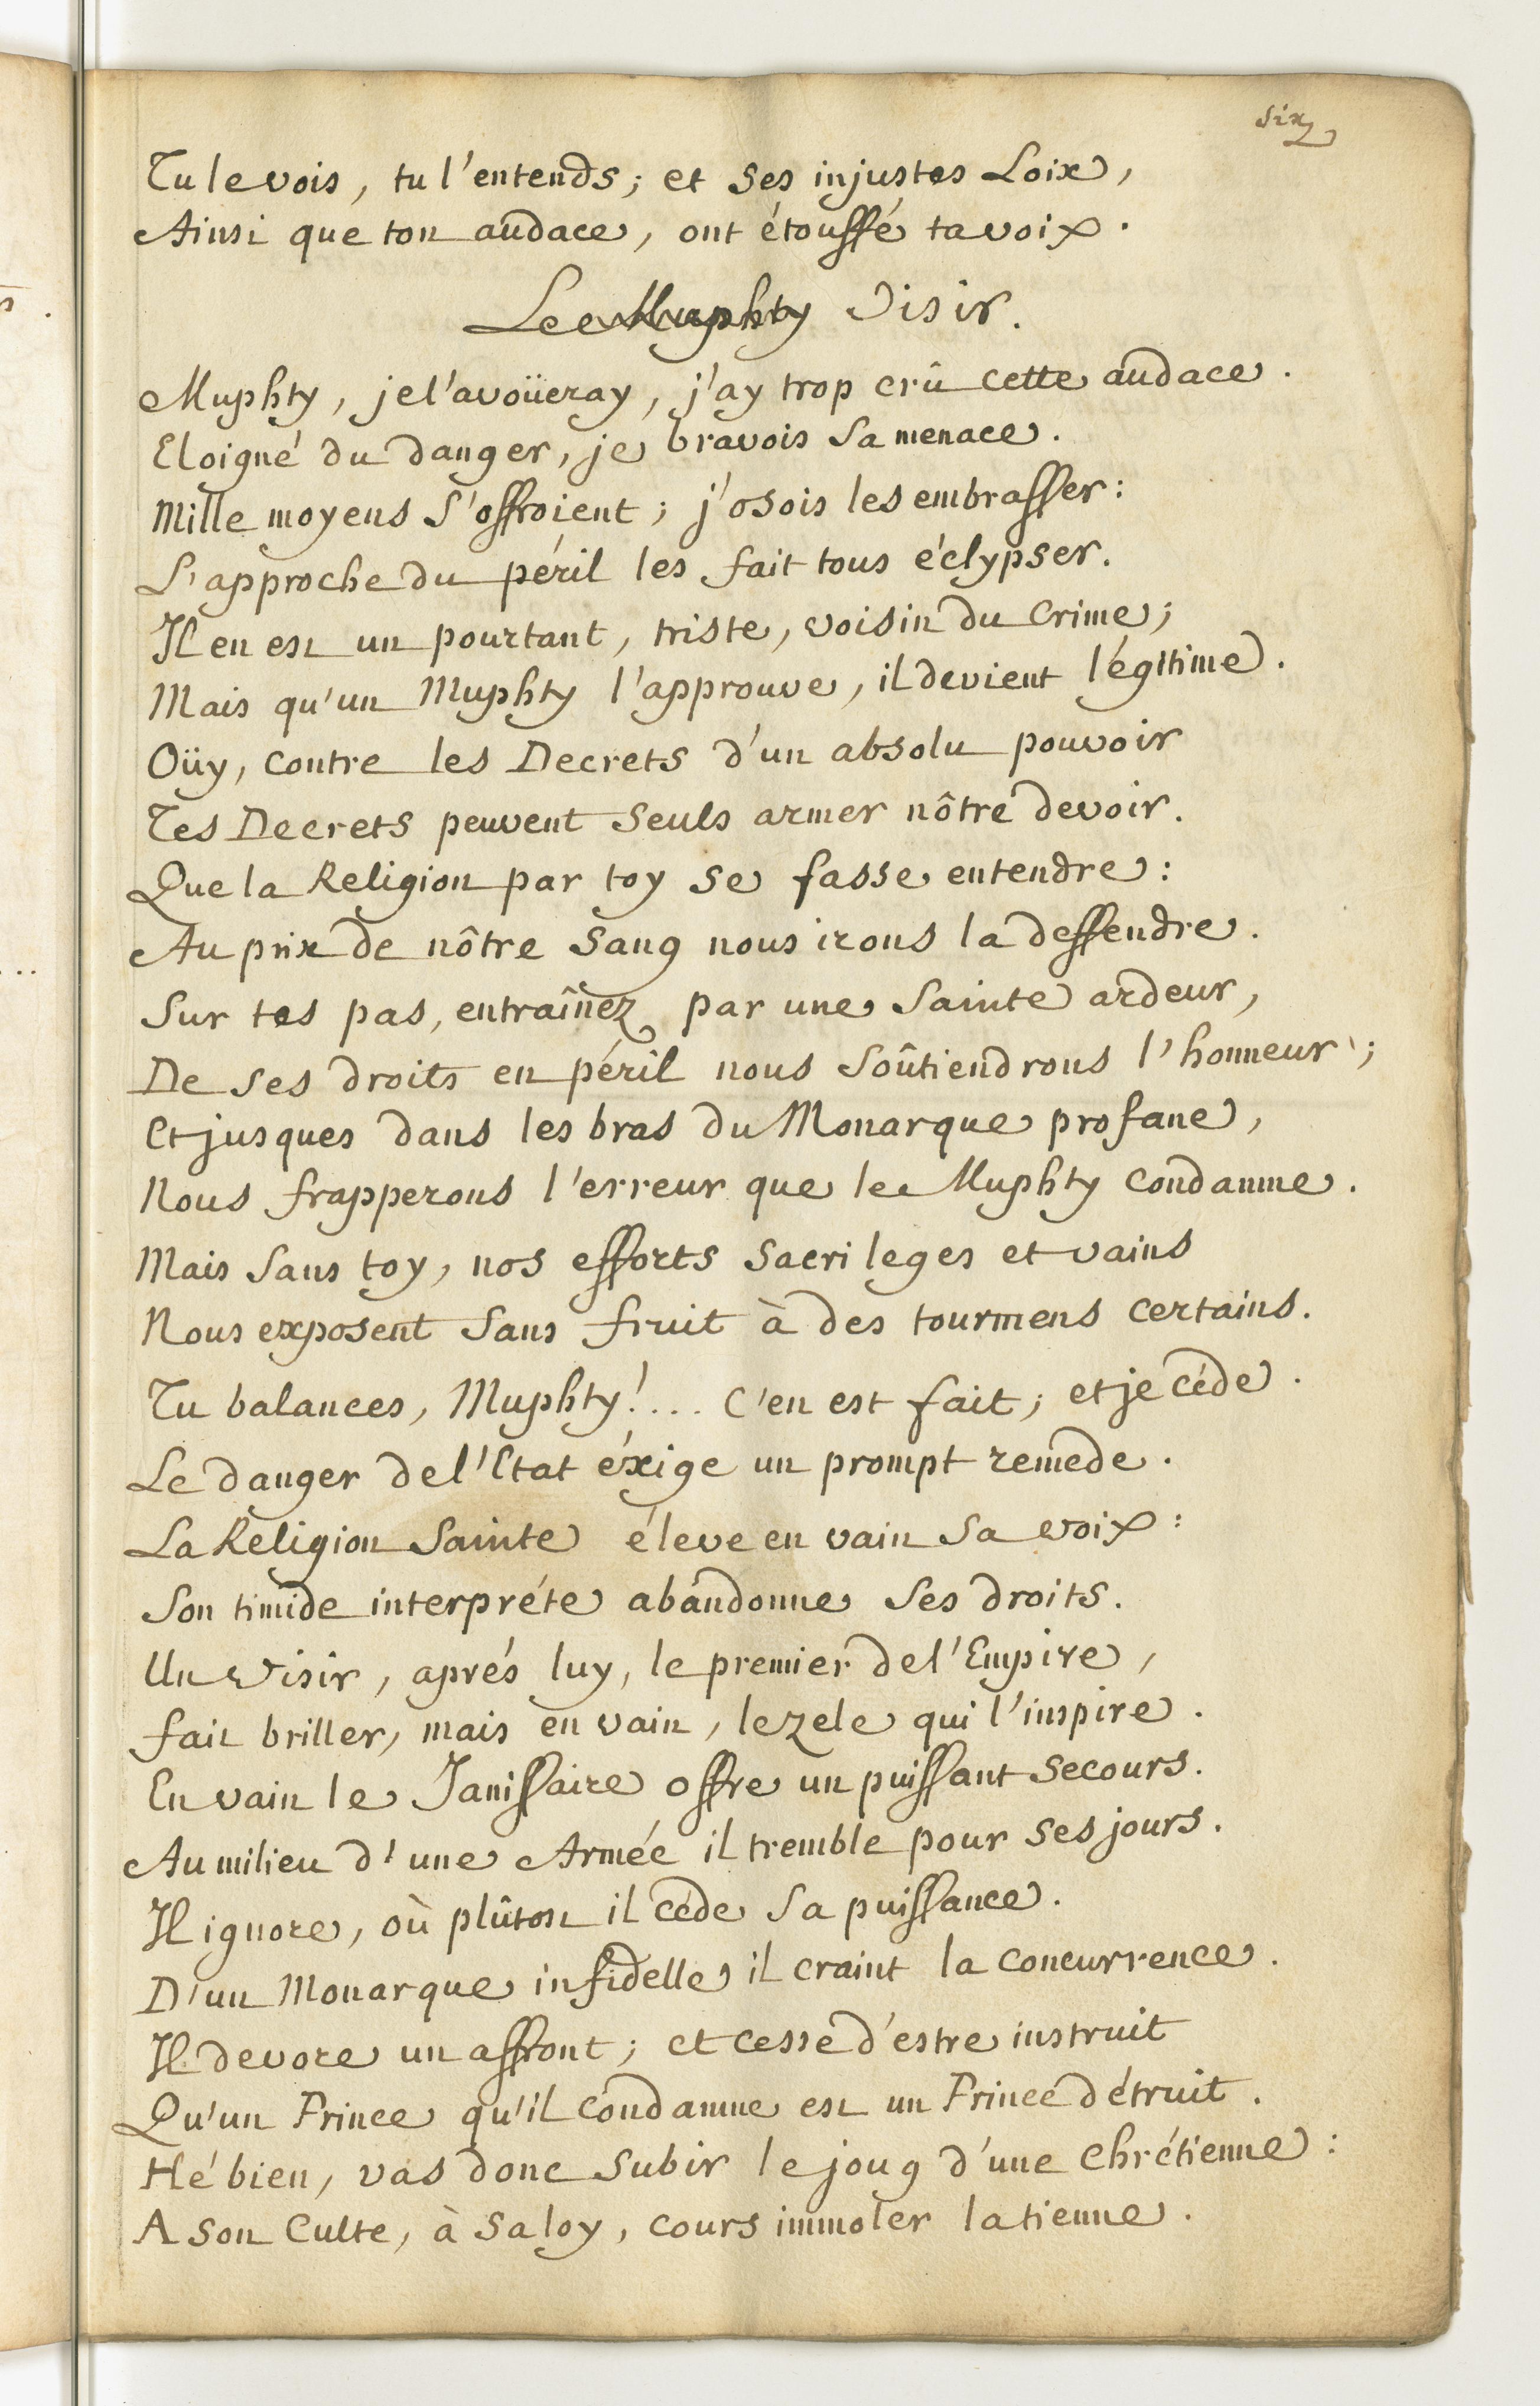 six
Tu le vois, tu l'entends; et ses injustes Loix,
Ainsi que ton audace, ont étouffé ta voix.
Le Muphty Visir.
Muphty, je l'avoüeray, j'ay trop crû cette audace.
Eloigné du danger, je bravois sa menace.
Mille moyens s'offroient; j'osois les embrasser:
L'approche du péril les fait tous éclypser.
Il en est un pourtant, triste, voisin du crime;
Mais qu'un Muphty l'approuve, il devient légitime.
Oüy, contre les Decrets d'un absolu pouvoir
Tes Decrets peuvent seuls armer nôtre devoir.
Que la Religion par toy se fasse entendre:
Au prix de nôtre sang nous irons la deffendre.
Sur tes pas, entraînez par une sainte ardeur,
De ses droits en péril nous soûtiendrons l'honneur;
Et jusques dans les bras du Monarque profane,
Nous frapperons l'erreur que le Muphty condamne.
Mais sans toy, nos efforts sacrileges et vains
Nous exposent sans fruit à des tourmens certains.
Tu balances, Muphty!... C'en est fait; et je céde.
Le danger de l'Etat éxige un prompt remede.
La Religion sainte éleve en vain sa voix:
Son timide interpréte abandonne ses droits.
Un Visir, aprés luy, le premier de l'Empire,
fait briller, mais en vain, le zele qui l'inspire.
En vain le Janissaire offre un puissant secours.
Au milieu d'une Armée il tremble pour ses jours.
Il ignore, où plûtost il céde sa puissance.
D'un Monarque infidelle il craint la concurrence.
Il devore un affront; et cesse d'estre instruit
Qu'un Prince qu'il condamne est un Prince détruit.
Hé bien, vas donc subir le joug d'une chrétienne:
A son Culte, à sa loy, cours immoler la tienne.